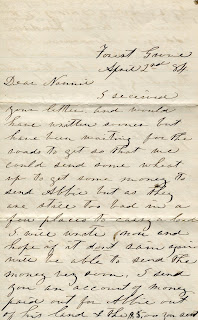 Forest Grove
April 2nd 84
Dear Nannie
I received
your letter and would
have written sooner but
have been waiting for the
roads to get so that we
could send some wheat
up to get some money to
send Abbie but as they
are still too bad in a
few places to carry a load
I will write now and
hope if it dont rain again
will be able to send the
money very soon, I send
you an account of money
paid out for Abbie out
of his land & the